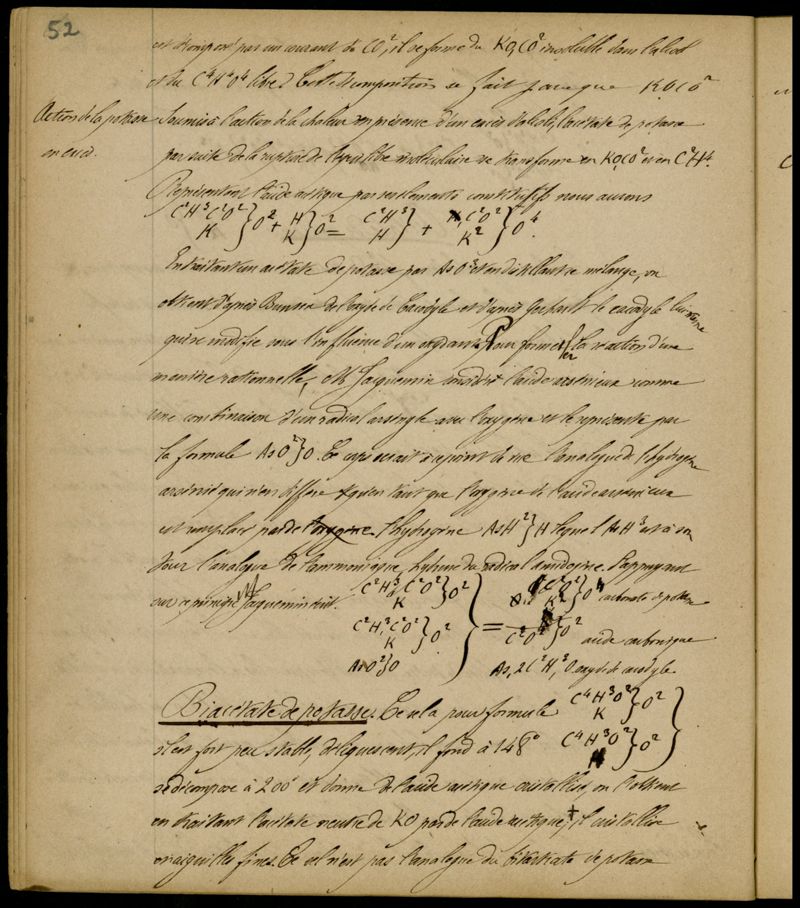 52
est décomposé par un courant de CO², il se forme du KO,CO² insoluble dans l'alcool
et du C⁴H⁴O⁴ libre. Cette décomposition se fait parce que KOCO²
Action de la potasse
en excès.
Soumis à l'action de la chaleur en présence d'un excès d'alcali, l'acétate de potasse
par suite de la rupture de l'équilibre moléculaire se transforme en KO,CO² et en C²H⁴.
Représentant l'acide acétique par ses éléments constitutifs nous aurons
C²H³C²O² / K } O² + H / K } O² = C²H³ / H } + C²O² / K² } O⁴.
En traitant un acétate de potasse par AsO³ et en distillant ce mélange, on
obtient d'après Bunsen de l'oxyde de Cacodyle et d'après Gerhardt le cacodyle lui même
qui se modifie sous l'influence d'un oxydant. Pour formuler la réaction d'une
manière rationnelle, M Jacquemin considère l'acide arsénieux comme
une combinaison d'un radical arsényle avec l'oxygène et le représente par
la formule AsO²}O. Ce corps serait à ce point de vue l'analogue de l'hydrogène
arsénié qui n'en diffère qu'en tant que l'oxygène de l'acide arsénieux
est remplacé par de l'oxygène. l'hydrogène AsH²}H lequel AsH³ est à son
tour l'analogue de l'ammoniaque, hydrure du radical amidogène. S'appuyant
sur ce principe M Jacquemin écrit.
C²H³,C²O² / K } O²
C²H³,C²O² / K } O²
AsO²}O
= C²O² / K² } O⁴ carbonate de potasse
C²O² } O² acide carbonique
As,2C²H³,O oxyde de cacodyle
Biacétate de potasse. Ce sel a pour formule C⁴H³O² / K } O²
il est fort peu stable, déliquescent, il fond à 148° C⁴H³O² / H } O²
se décompose à 200° et donne de l'acide acétique cristallisé, on l'obtient
en traitant l'acétate neutre de KO par de l'acide acétique,+ il cristallise
en aiguilles fines. Ce sel n'est pas l'analogue du bitartrate de potasse